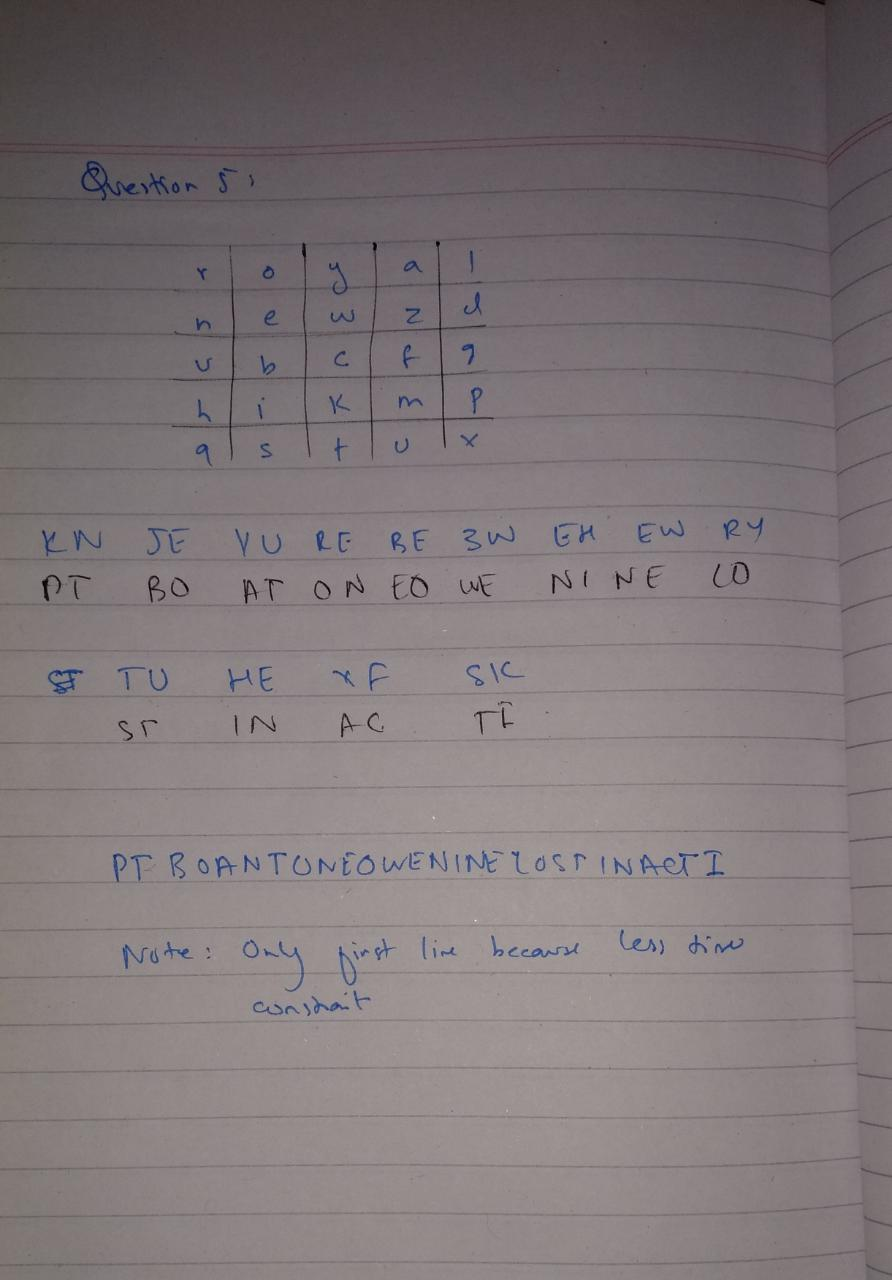 Question 5:
r o y a l
n e w z d
v b c f g
h i k m p
q s t u x
KN JE YU RE BE ZW EH EW RY
PT BO AT ON EO WE NI NE LO
TU HE XF SK
ST IN AC TI
PT BOANTONEOWENINELOSTINACTI
Note: Only first line because less time
constrait